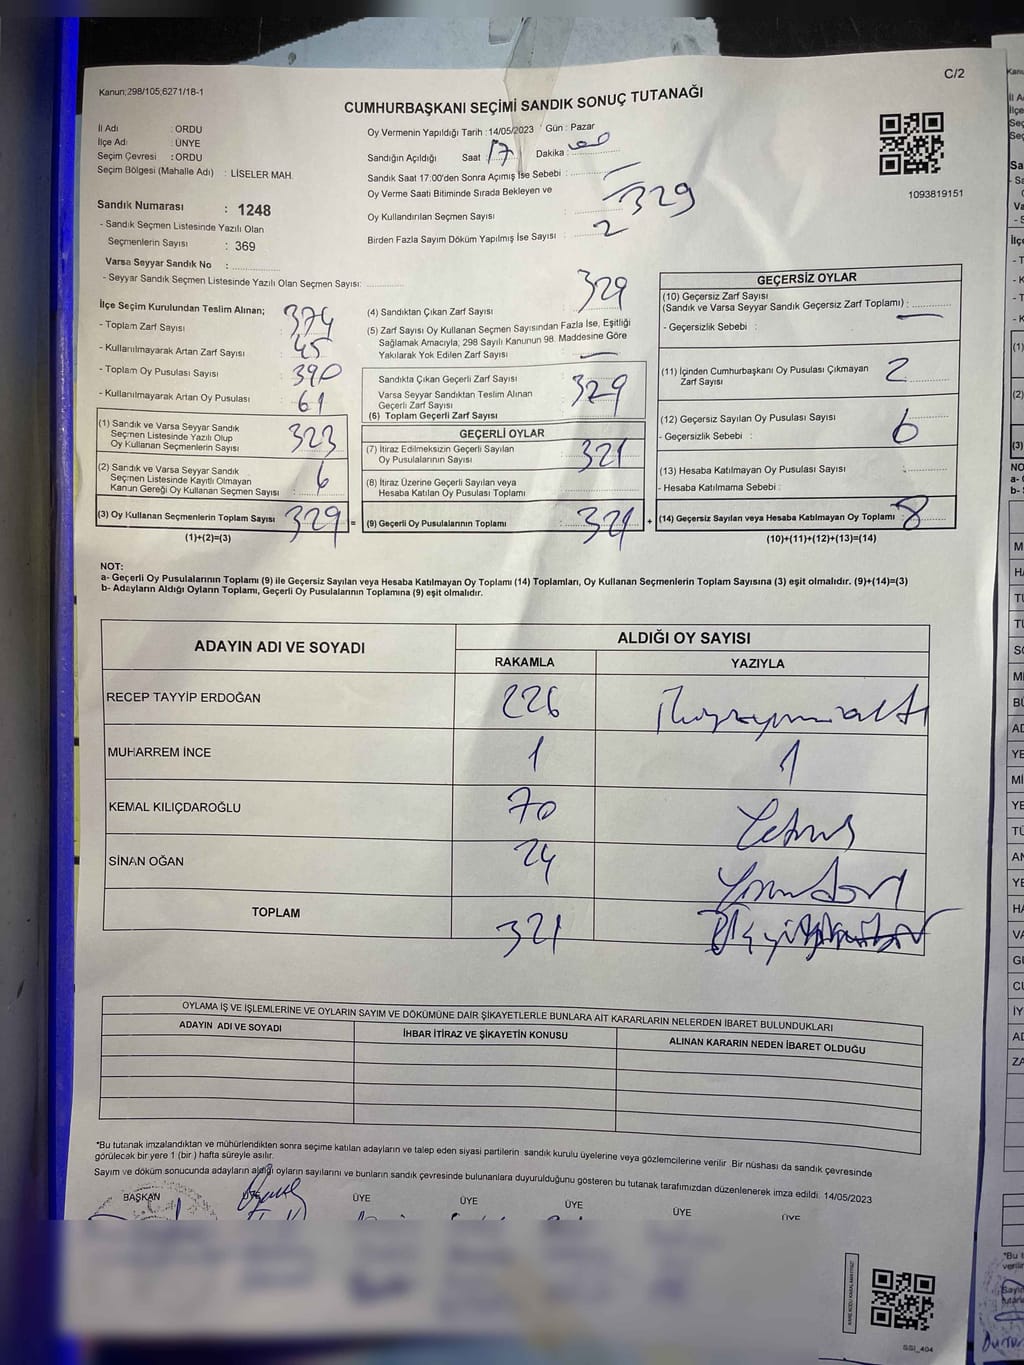 C/2
Kanun:298/105;6271/18-1
CUMHURBAŞKANI SEÇİMİ SANDIK SONUÇ TUTANAĞI
İl Adı : ORDU
İlçe Adı : ÜNYE
Seçim Çevresi : ORDU
Seçim Bölgesi (Mahalle Adı) : LİSELER MAH.
Sandık Numarası : 1248
- Sandık Seçmen Listesinde Yazılı Olan
Seçmenlerin Sayısı : 369
Varsa Seyyar Sandık No :
- Seyyar Sandık Seçmen Listesinde Yazılı Olan Seçmen Sayısı:
Oy Vermenin Yapıldığı Tarih : 14/05/2023 Gün : Pazar
Sandığın Açıldığı Saat : 17 Dakika :
Sandık Saat 17:00'den Sonra Açımış İse Sebebi :
Oy Verme Saati Bitiminde Sırada Bekleyen ve
Oy Kullandırılan Seçmen Sayısı : 329
Birden Fazla Sayım Döküm Yapılmış İse Sayısı : 2
1093819151
İlçe Seçim Kurulundan Teslim Alınan;
- Toplam Zarf Sayısı 374
- Kullanılmayarak Artan Zarf Sayısı 45
- Toplam Oy Pusulası Sayısı 390
- Kullanılmayarak Artan Oy Pusulası 61
(1) Sandık ve Varsa Seyyar Sandık
Seçmen Listesinde Yazılı Olup
Oy Kullanan Seçmenlerin Sayısı 323
(2) Sandık ve Varsa Seyyar Sandık
Seçmen Listesinde Kayıtlı Olmayan
Kanun Gereği Oy Kullanan Seçmen Sayısı : 6
(3) Oy Kullanan Seçmenlerin Toplam Sayısı 329 =
(1)+(2)=(3)
(4) Sandıktan Çıkan Zarf Sayısı 329
(5) Zarf Sayısı Oy Kullanan Seçmen Sayısından Fazla İse, Eşitliği
Sağlamak Amacıyla; 298 Sayılı Kanunun 98. Maddesine Göre
Yakılarak Yok Edilen Zarf Sayısı
Sandıkta Çıkan Geçerli Zarf Sayısı
Varsa Seyyar Sandıktan Teslim Alınan
Geçerli Zarf Sayısı
(6) Toplam Geçerli Zarf Sayısı 329
GEÇERLİ OYLAR
(7) İtiraz Edilmeksizin Geçerli Sayılan
Oy Pusulalarının Sayısı 321
(8) İtiraz Üzerine Geçerli Sayılan veya
Hesaba Katılan Oy Pusulası Toplamı
(9) Geçerli Oy Pusulalarının Toplamı 321 +
GEÇERSİZ OYLAR
(10) Geçersiz Zarf Sayısı
(Sandık ve Varsa Seyyar Sandık Geçersiz Zarf Toplamı) :
- Geçersizlik Sebebi :
(11) İçinden Cumhurbaşkanı Oy Pusulası Çıkmayan
Zarf Sayısı 2
(12) Geçersiz Sayılan Oy Pusulası Sayısı 6
- Geçersizlik Sebebi :
(13) Hesaba Katılmayan Oy Pusulası Sayısı :
- Hesaba Katılmama Sebebi :
(14) Geçersiz Sayılan veya Hesaba Katılmayan Oy Toplamı 8
(10)+(11)+(12)+(13)=(14)
NOT:
a- Geçerli Oy Pusulalarının Toplamı (9) ile Geçersiz Sayılan veya Hesaba Katılmayan Oy Toplamı (14) Toplamları, Oy Kullanan Seçmenlerin Toplam Sayısına (3) eşit olmalıdır. (9)+(14)=(3)
b- Adayların Aldığı Oyların Toplamı, Geçerli Oy Pusulalarının Toplamına (9) eşit olmalıdır.
ADAYIN ADI VE SOYADI ALDIĞI OY SAYISI
RAKAMLA YAZIYLA
RECEP TAYYİP ERDOĞAN 226
MUHARREM İNCE 1 1
KEMAL KILIÇDAROĞLU 70
SİNAN OĞAN 24
TOPLAM 321
OYLAMA İŞ VE İŞLEMLERİNE VE OYLARIN SAYIM VE DÖKÜMÜNE DAİR ŞİKAYETLERLE BUNLARA AİT KARARLARIN NELERDEN İBARET BULUNDUKLARI
ADAYIN ADI VE SOYADI İHBAR İTİRAZ VE ŞİKAYETİN KONUSU ALINAN KARARIN NEDEN İBARET OLDUĞU
*Bu tutanak imzalandıktan ve mühürlendikten sonra seçime katılan adayların ve talep eden siyasi partilerin sandık kurulu üyelerine veya gözlemcilerine verilir. Bir nüshası da sandık çevresinde
görülecek bir yere 1 (bir ) hafta süreyle asılır.
Sayım ve döküm sonucunda adayların aldığı oyların sayılarını ve bunların sandık çevresinde bulunanlara duyurulduğunu gösteren bu tutanak tarafımızdan düzenlenerek imza edildi. 14/05/2023
BAŞKAN ÜYE ÜYE ÜYE ÜYE ÜYE ÜYE
SSI_404